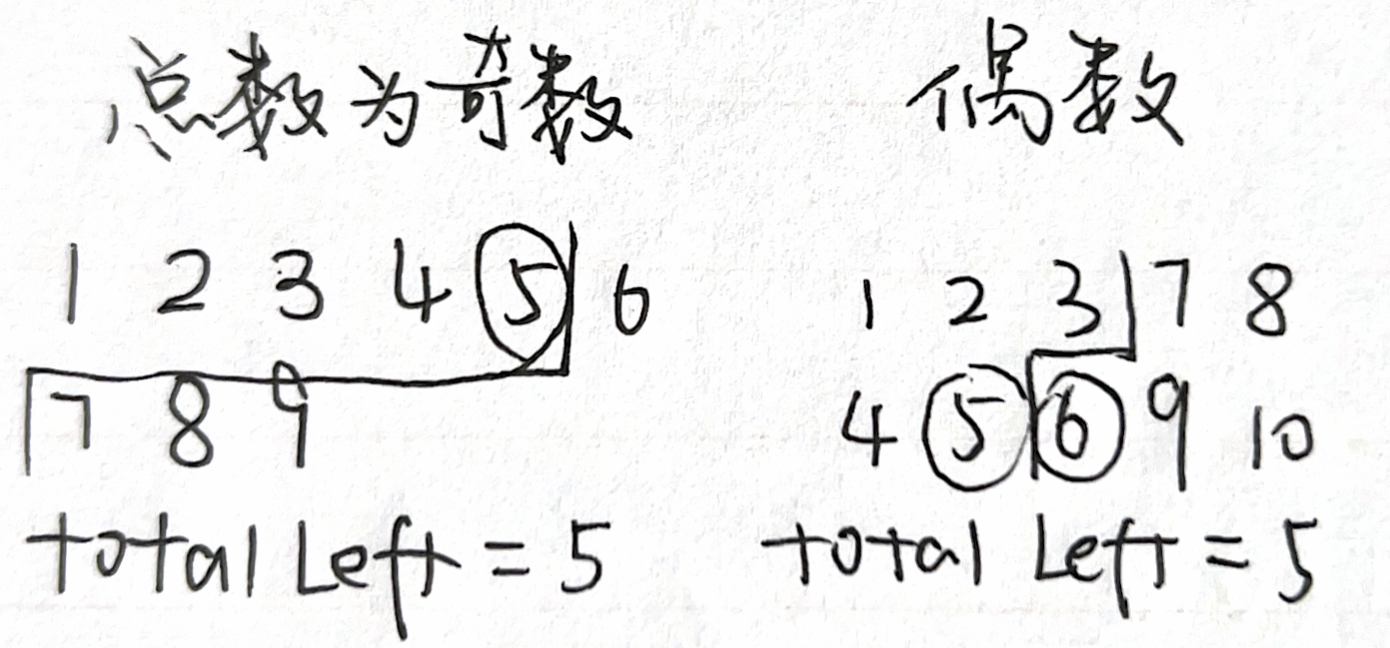 总数为奇数 偶数
1 2 3 4 5 6 1 2 3 7 8
7 8 9 4 5 6 9 10
total Left = 5 total Left = 5